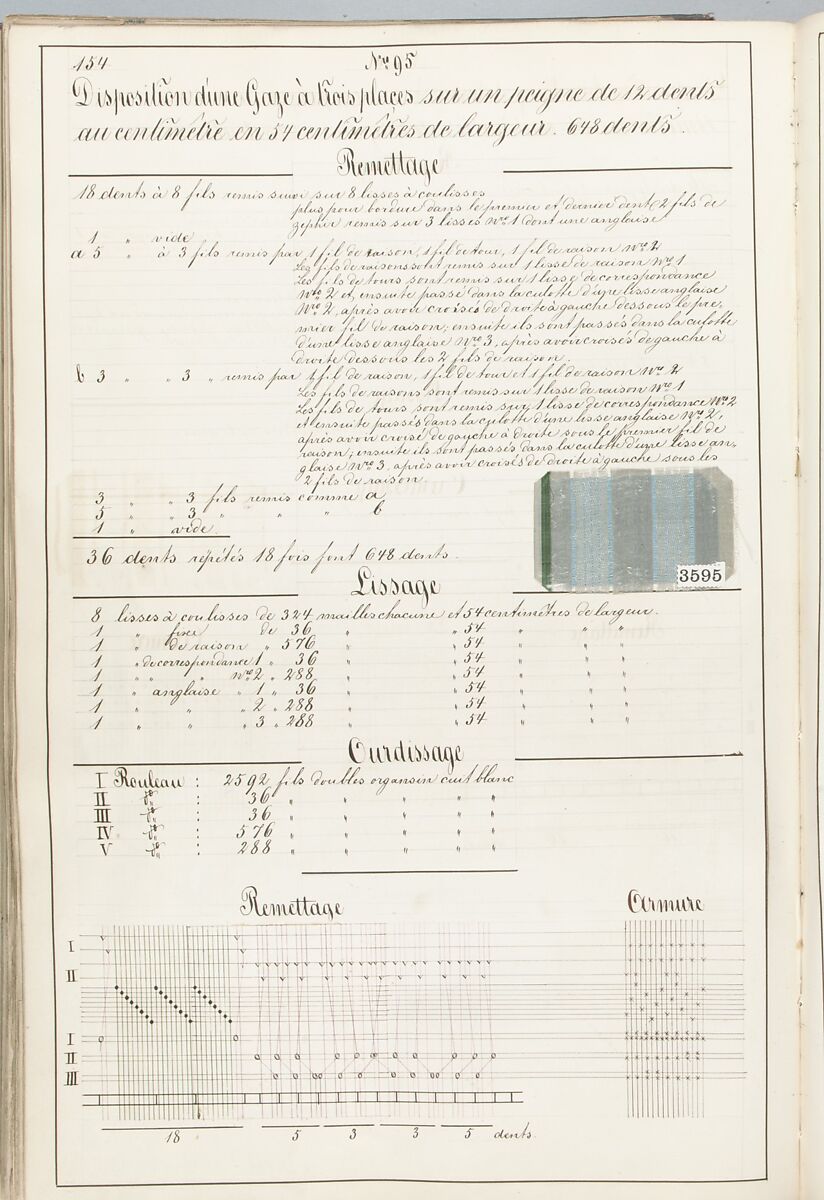 154 Nro 95
Disposition d'une Gaze à trois places sur un peigne de 12 dents
au centimètre en 54 centimètres de largeur. 648 dents.
Remettage
18 dents à 8 fils remis suivi sur 8 lisses à coulisses
plus pour bordure dans le premier et dernier dent 2 fils de
zephir remis sur 3 lisses Nro 1 dont une anglaise
1 " vide
a 5 " à 3 fils remis par 1 fil de raison, 1 fil de tour, 1 fil de raison Nro 2
Les fils de raisons sont remis sur 1 lisse de raison Nro 1
Les fils de tours sont remis sur 1 lisse de correspondance
Nro 2 et ensuite passé dans la culotte d'une lisse anglaise
Nro 2, après avoir croisés de droite à gauche dessous le pre-
mier fil de raison; ensuite ils sont passés dans la culotte
d'une lisse anglaise Nro 3, après avoir croisés de gauche à
droite dessous les 2 fils de raison.
b 3 " " 3 " remis par 1 fil de raison, 1 fil de tour et 1 fil de raison Nro 2
Les fils de raisons sont remis sur 1 lisse de raison Nro 1
Les fils de tours sont remis sur 1 lisse de correspondance Nro 2
et ensuite passés dans la culotte d'une lisse anglaise Nro 2,
après avoir croisé de gauche à droite sous le premier fil de
raison; ensuite ils sont passés dans la culotte d'une lisse an-
glaise Nro 3, après avoir croisés de droite à gauche sous les
2 fils de raison.
3 " " 3 fils remis comme a
5 " " 3 " " " b
1 " vide.
36 dents répétés 18 fois font 648 dents.
3595
Lissage
8 lisses à coulisses de 324 mailles chacune et 54 centimètres de largeur.
1 " fixe de 36 " " 54 " " "
1 " de raison " 576 " " 54 " " "
1 " de correspondance 1 " 36 " " 54 " " "
1 " " " Nro 2 " 288 " " 54 " " "
1 " anglaise " 1 " 36 " " 54 " " "
1 " " " 2 " 288 " " 54 " " "
1 " " " 3 " 288 " " 54 " " "
Ourdissage
I Rouleau : 2592 fils doubles organsin cuit blanc
II do : 36 " " " " "
III do : 36 " " " " "
IV do : 576 " " " " "
V do : 288 " " " " "
Remettage Armure
I
II
I
II
III
18 5 3 3 5 dents.